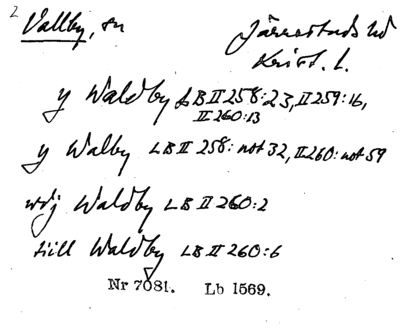 2
Vallby, sn Järrestads hd
Krist. l.
y Waldby LB II 258:23, II 259:16,
II 260:13
y Walby LB II 258: not 32, II 260: not 59
wdj Waldby LB II 260:2
till Waldby LB II 260:6
Nr 7081. Lb 1569.